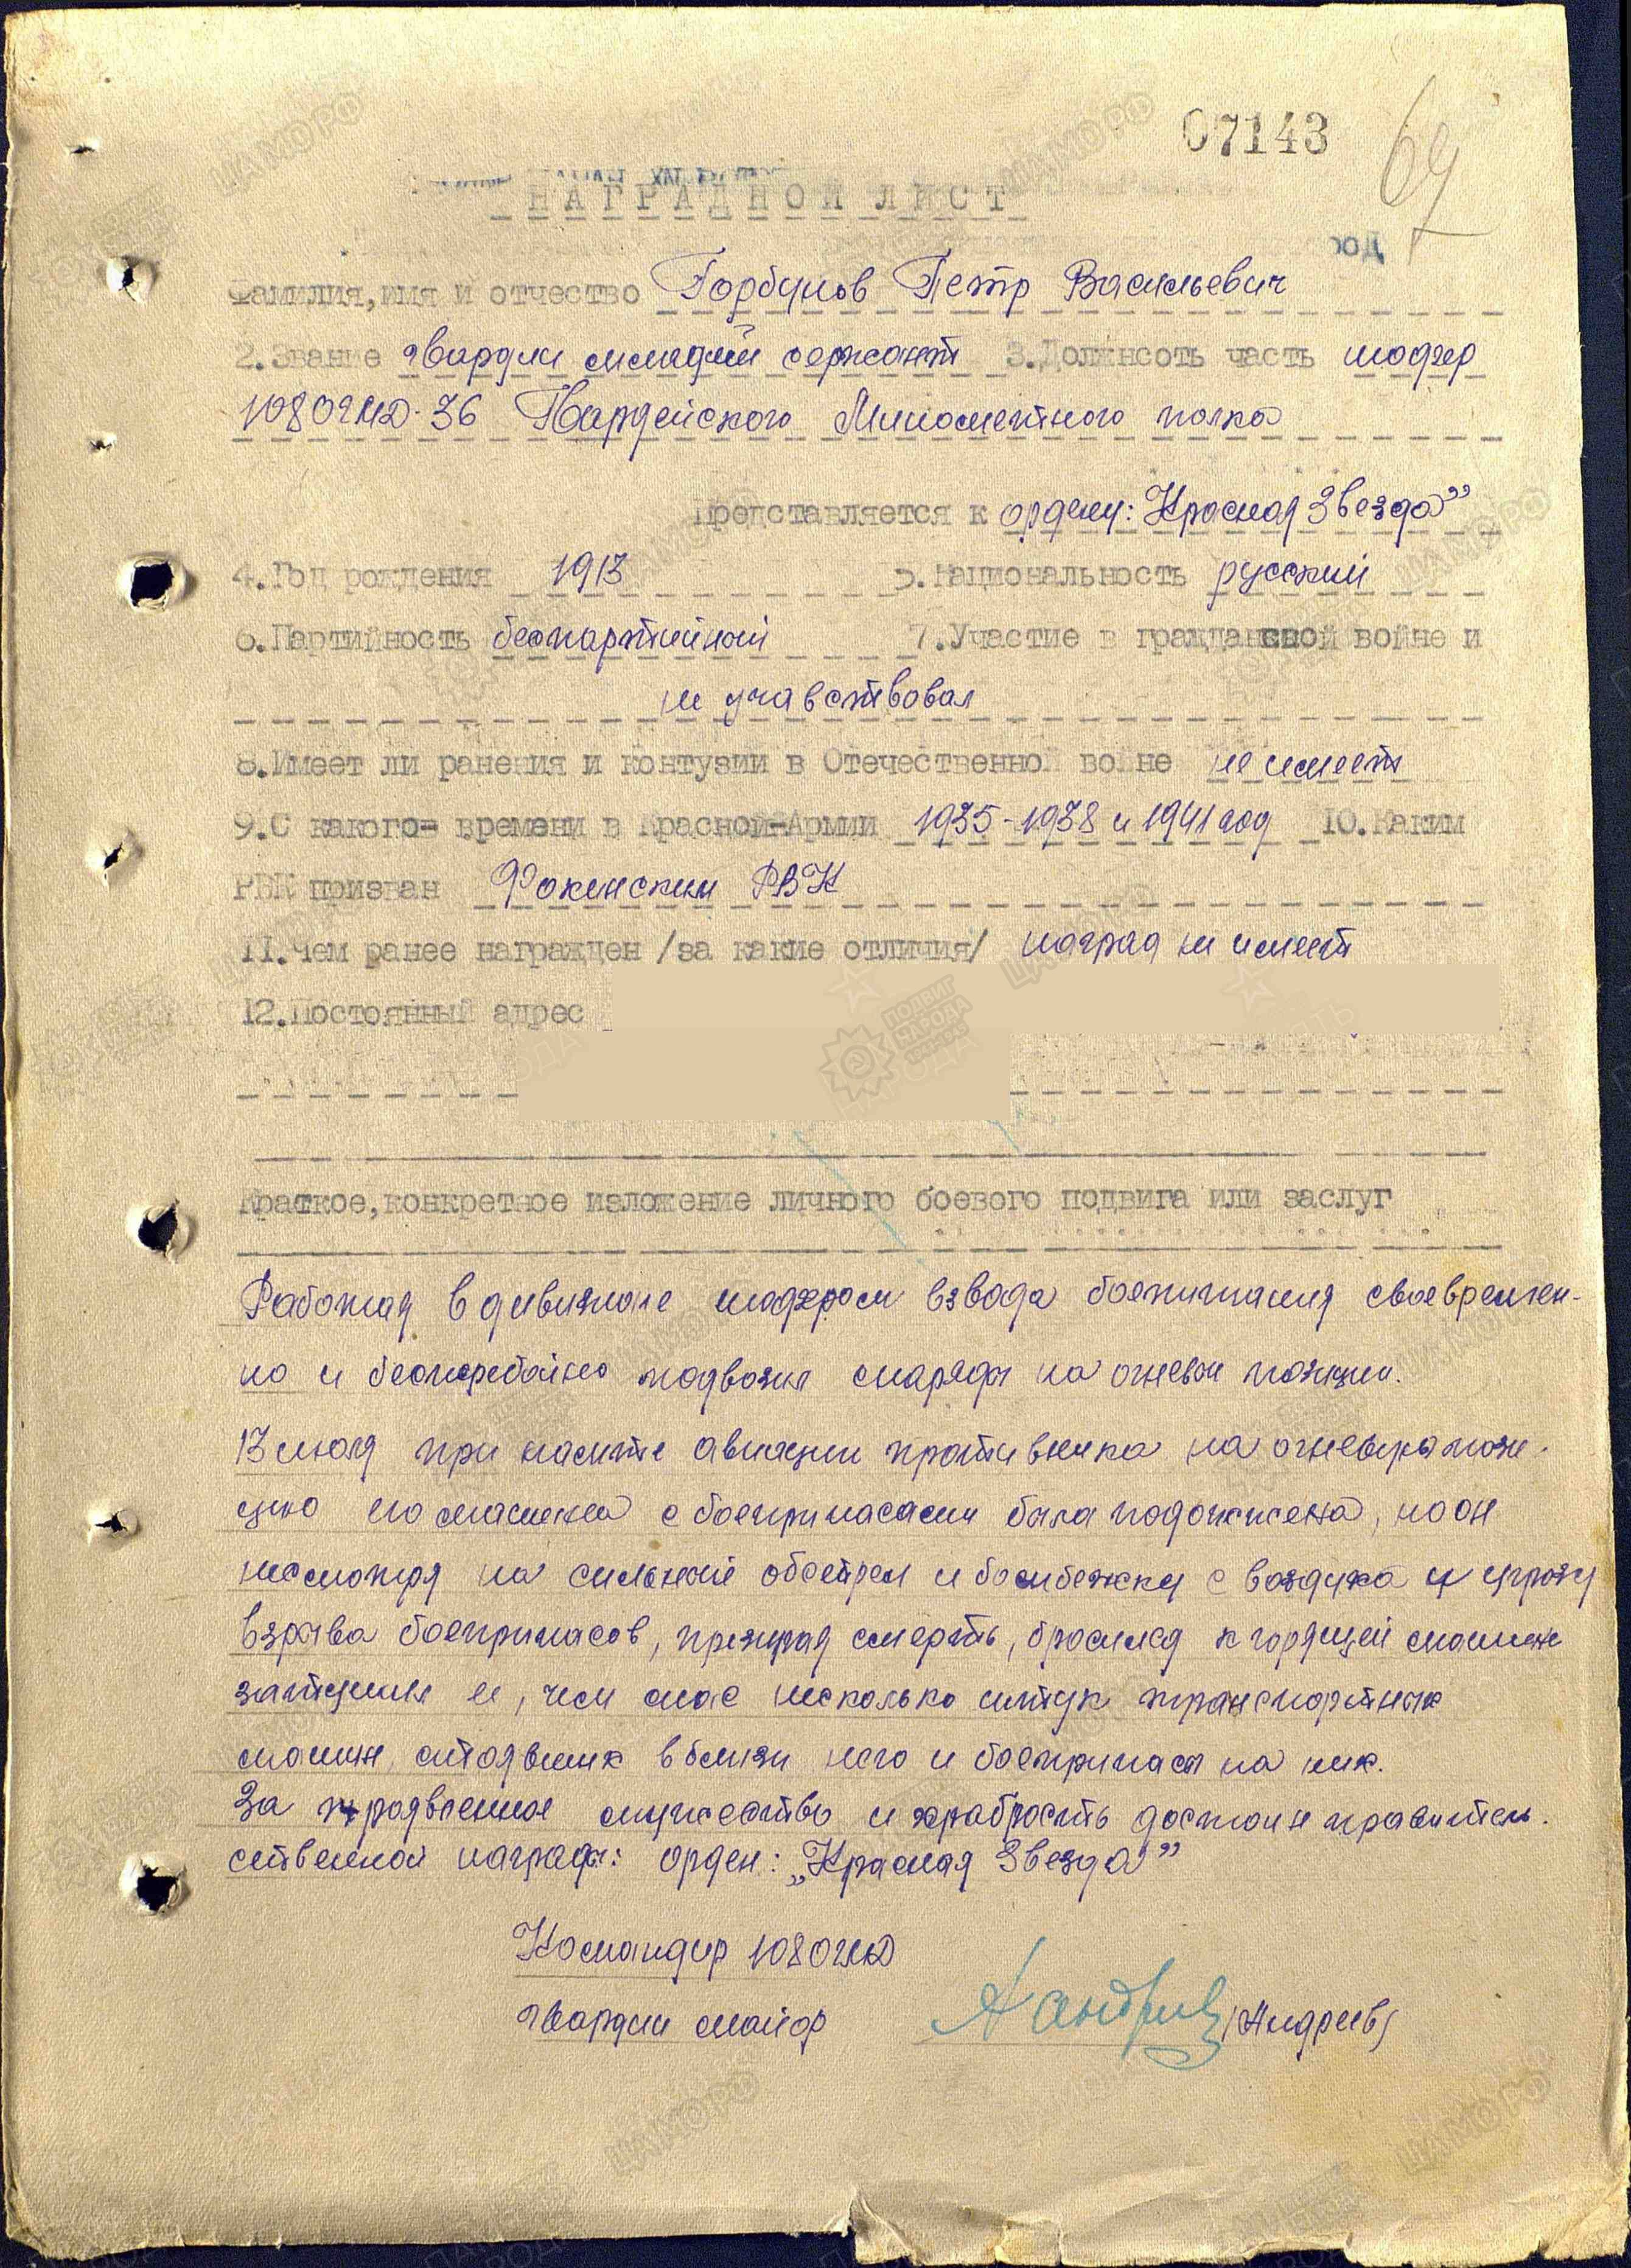 07143
69
НАГРАДНОЙ ЛИСТ
Фамилия, имя и отчество Горбунов Петр Васильевич
2. Звание гвардии младший сержант 3. Должнсоть часть шофер
108 ОГМД. 36 Гвардейского Минометного полка
Представляется к ордену: Красная Звезда”
4. Год рождения 1913 5. Национальность русский
6. Партийность беспартийный 7. Участие в гражданской войне и
не учавствовал
8. Имеет ли ранения и контузии в Отечественной войне не имеет
9. С какого- времени в Красной-Армии 1935-1938 и 1941 год 10. Каким
РВК призван Фокинским РВК
11. Чем ранее награжден /за какие отличия/ наград не имеет
12. Постоянный адрес
Краткое, конкретное изложение личного боевого подвига или заслуг
Работая в дивизионе шофером взвода боепитания своевремен-
но и бесперебойно подвозил снаряды на огневые позиции.
13 июля при налете авиации противника на огневую пози-
цию его машина с боеприпасами была подожжена, но он
несмотря на сильный обстрел и бомбежку с воздуха и угрозу
взрыва боеприпасов, презирая смерть, бросился к горящей машине
затушил ее, чем спас несколько штук транспортных
машин, стоявших вблизи него и боеприпасы на них.
За проявленное мужество и храбрость достоин правитель-
ственной награды: орден: „Красная Звезда”
Командир 108 ОГМД
гвардии майор /Андреев/
ПОДВИГ НАРОДА
ЦАМО РФ